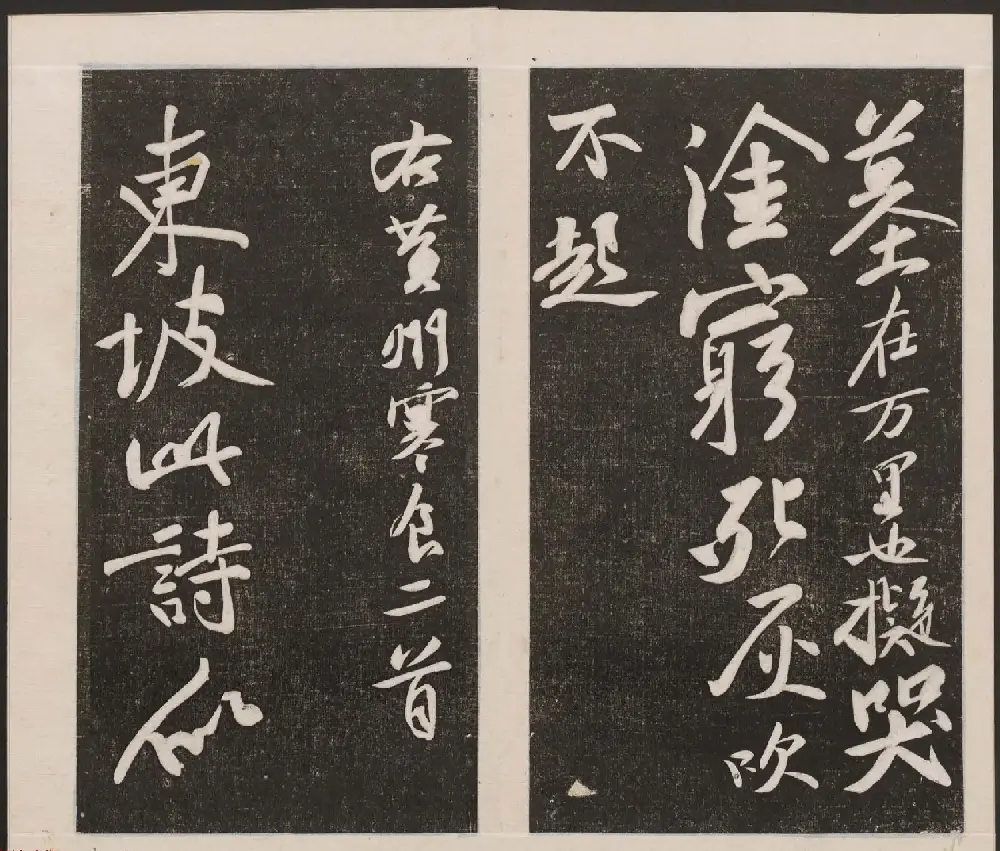 墓在万里也擬哭
塗窮死灰吹
不起
右黄州寒食二首
東坡此詩似